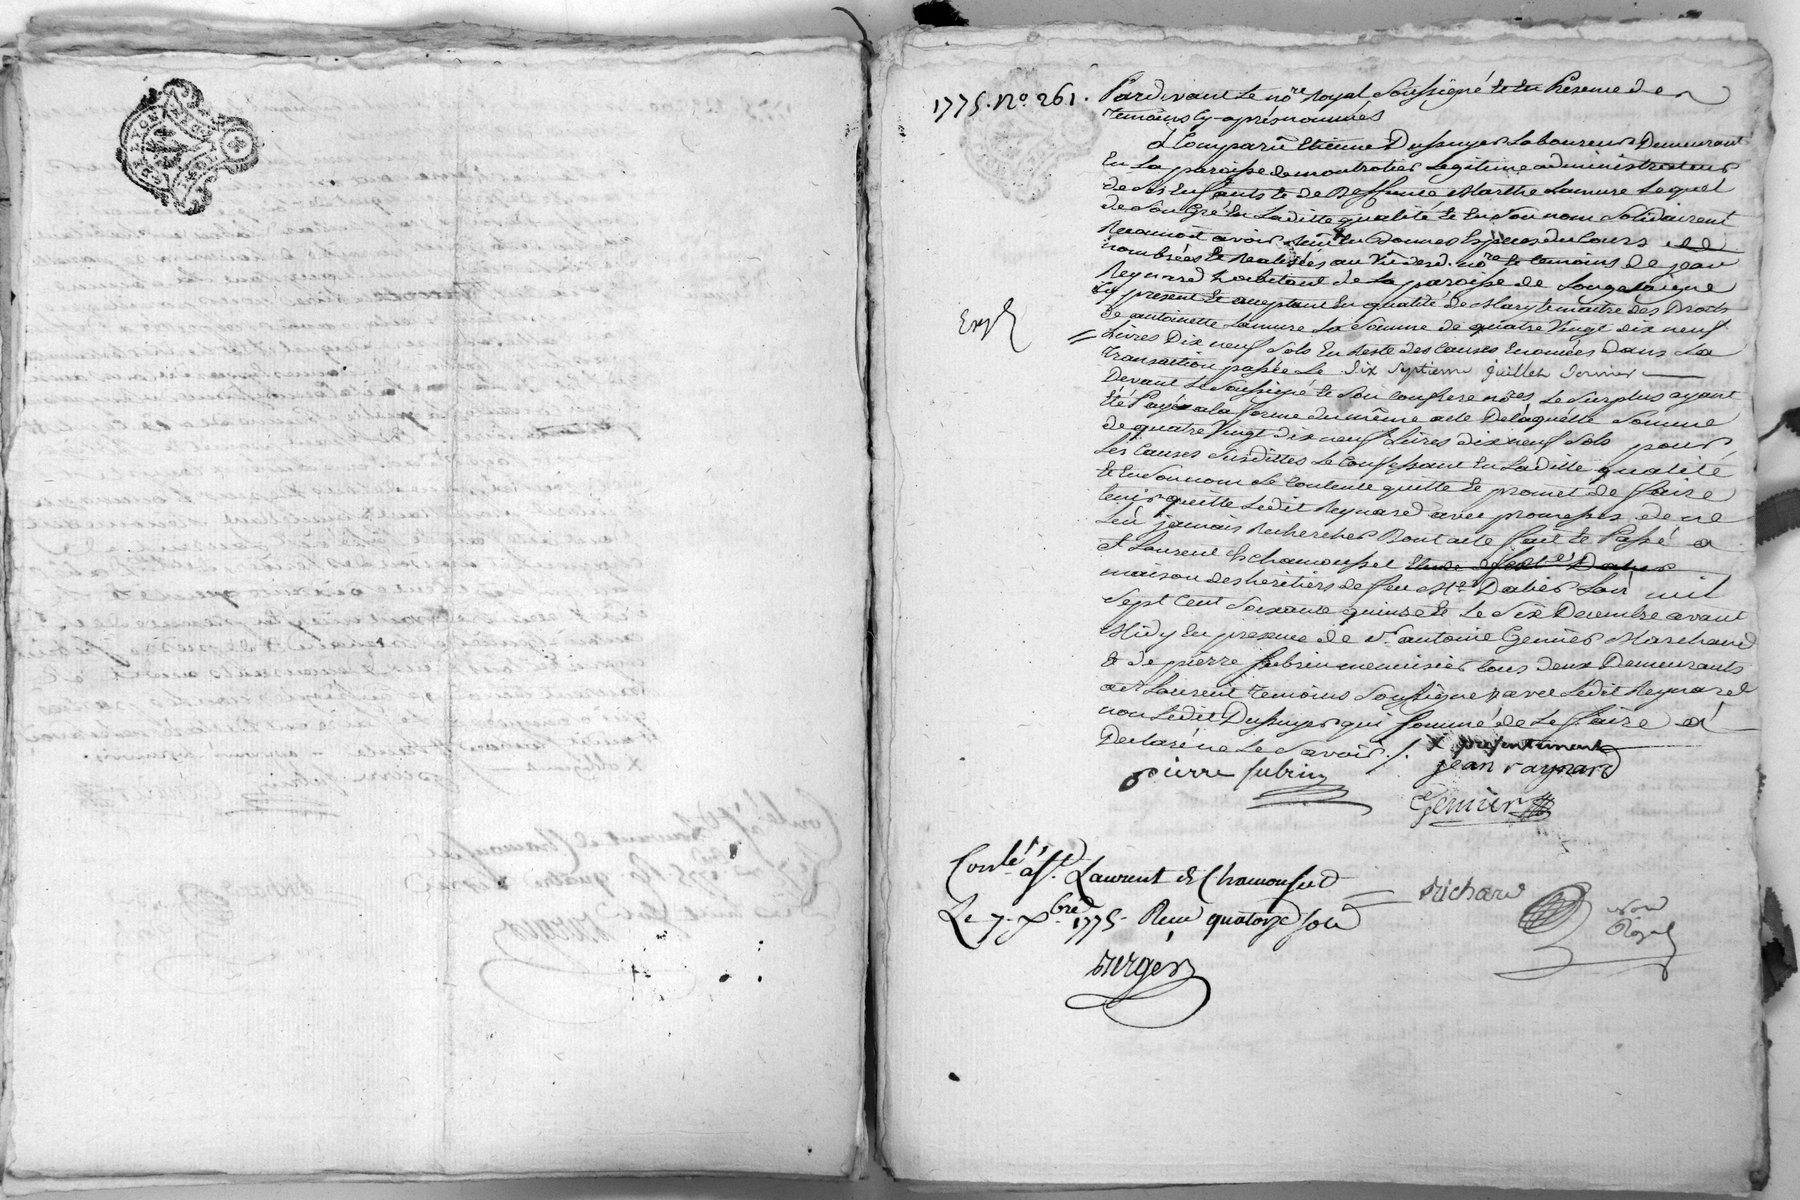 1775. No. 261.
Pardevant Le nore Royal Soussigné et En Presence de
Temoins Cy-apres nommés
a Comparu Etienne Dussuyer Laboureur Demeurant
En La paroisse de montrotier Legitime administrateur
de ses Enfants et de Deffunte Marthe Lamure Lequel
de Son Gré En Laditte qualité et En Son nom Solidairement
Reconnoit avoir Reçu En Bonnes Especes du Cours
nombrées et Realisées au Vu desd. nore et temoins de jean
Reynard habitant de La paroisse de Longesaigne
Cy present et acceptant En qualité de Mary et maitre des Droits
de antoinette Lamure La Somme de quatre Vingt dix neuf
Livres Dix neuf Sols En Reste des Causes Enoncées dans La
Transaction passée Le dix Septieme juillet dernier
Devant Le Soussigné et Son Confrere nores Le Surplus ayant
Eté Payé a la forme du même acte De laquelle Somme
de quatre Vingt dix neuf Livres dix neuf Sols pour
Les Causes Susdittes Le Confessant En Laditte qualité
et En Son nom Se Contente quitte et promet de faire
tenir quitte Ledit Reynard avec promesses de ne
Lén jamais Rechercher Dont acte fait et Passé a
St Laurent de chamousset
maison des heritiers de feu Me Dahier Lan mil
Sept Cent Soixante quinze et Le Six Decembre avant
Midy En presence de Sr antoine Genier Marchand
& de pierre Subrin menuisier tous deux Demeurants
a St Laurent temoins Soussignés avec Ledit Reynard
non Ledit Dussuyer qui Sommé de Le faire a
Declaré ne Le Savoir ./. x presentement
pierre subrin jean raynard
Genier
Conlé a St. Laurent de Chamousset
Le 7. Xbre 1775. Recu quatorze sols
Richard
nore
Royal
Berger
Exp